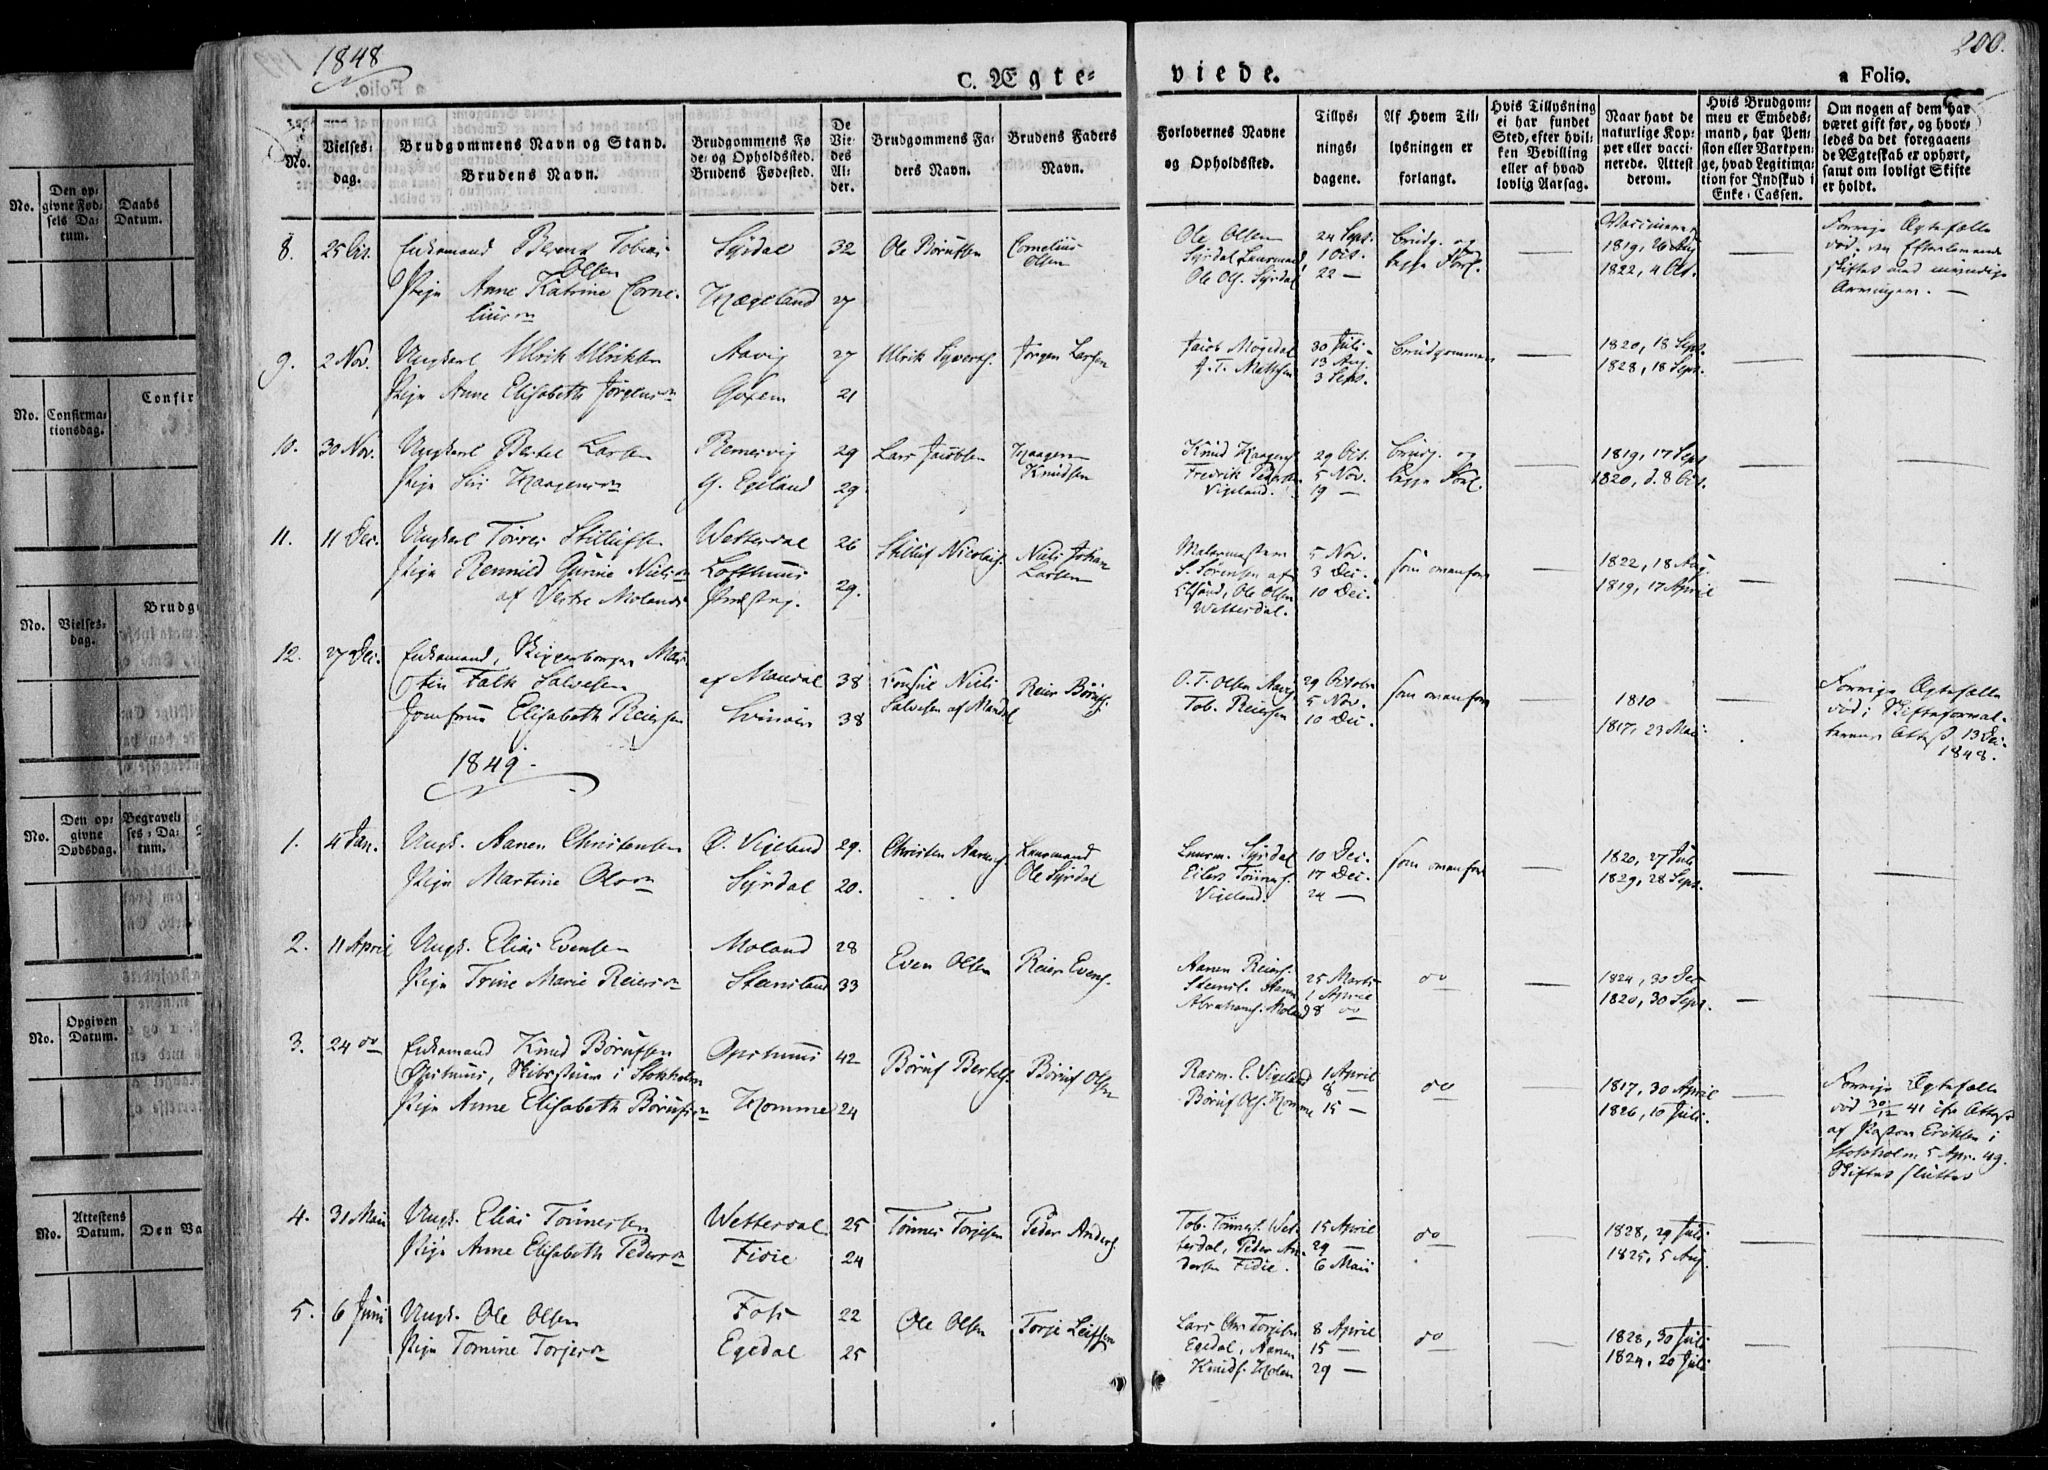 1848
C. Ægte-
viede.
a Folio.
200.
No.
Vielses-
dag.
Brudgommens Navn og Stand.
Brudens Navn.
Brudgommens Fø
de- og Opholdssted.
Brudens Fødested.
De
Vie-
des
Al-
der.
Brudgommens Fa-
ders Navn.
Brudens Faders
Navn.
Forlovernes Navne
og Opholdssted.
Tillys-
nings-
dagene.
Af Hvem Til-
lysningen er
forlangt.
Hvis Tillysning
ei har fundet
Sted, efter hvil-
ken Bevilling
eller af hvad
lovlig Aarsag.
Naar havt de
naturlige Kop-
per eller vacci-
nerede. Attest
derom.
Hvis Brudgom-
men er Embeds-
mand, har Pen-
sion eller Vartpen-
ge, hvad Legitima-
tion for Indskud i
Enke-Cassen.
Om nogen af dem har
været gift før, og hvor-
ledes da det foregaaen-
de Ægteskab er ophørt,
samt om lovligt Skifte
er holdt.
8. 25 Oct. Enkemand Berent Tobias
Olsen
Pige Anne Katrine Corne-
liusdn
Syrdal
Hægeland
32
27
Ole Børufsen
Cornelius
Olsen
Ole Olsen
Syrdal Lensmand
Ole Ols. Syrdal
24 Sept.
1 Oct.
22 —
Brudg. og
begge Forl.
Vaccinerede
1819, 26 Aug
1822, 4 Oct.
Forrige Ægtefælle
død, den Efterlevende
skiftet med myndige
Arvinger. —
9. 2 Nov. Ungkarl Ulrik Ulriksen
Pige Anne Elisabeth Jørgensdn
Aavig
Goxem
27
21
Ulrik Syverts.
Jørgen Larsen
Jacob Møgedal
J. T. Mathisen
30 Juli
13 Aug.
3 Sept.
Brudgommen
1820, 18 Sept.
1828, 18 Sept.
10. 30 Nov. Ungkarl Bertel Larsen
Pige Siri Haagensdn
Remesvig
Y. Egeland
29
29.
Lars Jacobsen
Haagen
Knudsen
Knud Haagens.
Fredrik Pedersen
Vigeland.
29 Oct.
5 Nov.
19 —
Brudg. og
begge Forl.
1819, 17 Sept
1820, d. 8 Oct.
11. 11 Dec. Ungkarl Tørres Stillufsen
Pige Rennild Gurine Nielsdn
af Vestre Molands
Præstegj.
Wetterdal
Lofthuus
26
29.
Stilluf Nicolais.
Niels Johan
Larsen
Malermester
S. Sørensen af
Clsand, Ole Olsen
Wetterdal.
5 Nov.
3 Dec.
10 Dec.
som ovenfor
1822, 18 Aug.
1819, 17 April
12. 27 Dec. Enkemand, Skipperborger Mar-
tin Falk Salvesen
Jomfrue Elisabeth Reiersen
af Mandal
Svinør
38
38
Consul Niels
Salvesen af Mandal
Reier Børufs.
O. T. Olsen Aavig
Tob. Reiersen
29 Octobr
5 Nov.
10 Dec.
som ovenfor
1810
1817, 23 Mai
Forrige Ægtefælle
død; Skifteforval-
terens Attest 13 Dec.
1848.
1849.
1. 4 Jan. Ungk. Aanen Christensen
Pige Martine Olsdn
O. Vigeland
Syrdal
29.
20.
Christen Aanens.
Lensmand
Ole Syrdal
Lensm. Syrdal
Eilert Tønnes.
Vigeland.
10 Dec.
17 Dec.
24 —
som ovenfor
1820, 27 Juli
1829, 28 Sept.
2. 11 April Ungk. Elias Evensen
Pige Trine Marie Reiersdn
Moland
Steinsland
28
33
Even Olsen
Reier Evens.
Aanen Reiers.
Steinsl. Aanen
Abrahams. Moland
25 Marts
1 April
8 do
do
1824, 30 Dec
1820, 30 Sept.
3. 24 do Enkemand Knud Børufsen
Opsthuus, Skibstømm i Stokholm
Pige Anne Elisabeth Børufsdn
Opsthuus
Homme
42
24
Børuf Bertels.
Børuf Olsen
Rasm. E. Vigeland
Børuf Ols. Homme
1 April
8 —
15 —
do
1817, 30 April
1826, 10 Juli.
Forrige Ægtefælle
død 30/12 41 ifr Attest
af Pastor Eriksen i
Stokholm 5 Apr. 49.
Skiftet sluttet
4. 31 Mai Ungk. Elias Tønnessen
Pige Anne Elisabeth Pedersdn
Wetterdal
Fidie
25
24
Tønnes Torjesen
Peder Anders.
Tob. Tønnes. Wet-
terdal, Peder An-
dersen Fidie.
15 April
29 —
6 Mai
do
1828, 29 Juli
1825, 5 Aug.
5. 6 Juni Ungk. Ole Olsen
Pige Tomine Torjesdn
Foss
Egedal
22
25
Ole Olsen
Torje Leifsen
Lars Chr. Torjesen
Egedal, Aanen
Knuds. Holen
8 April
15 —
29 —
do
1828, 30 Juli
1824, 20 Juli
No.
Den op-
givne Fød-
sels Da-
tum.
Daabs
Datum.
No.
Confirma-
tionsdag.
Confir
No.
Vielses-
dag.
Brudg
No.
Den op-
givne
Dødsdag.
Begravel-
ses-Da-
tum.
No.
Opgiven
Datum.
No.
Attestens
Datum.
Den Va